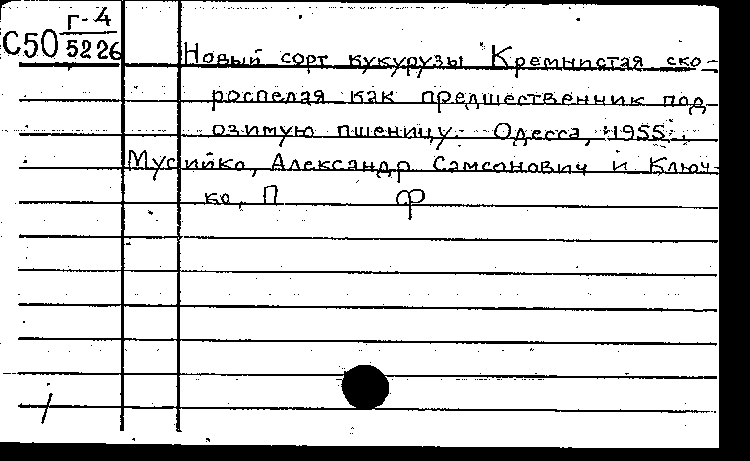 Г-4
С50 5226
Новый сорт кукурузы "Кремнистая ско-
роспелая как предшественник под
озимую пшеницу. Одесса, 1955.
Мусийко, Александр Самсонович и Ключ-
ко, П Ф